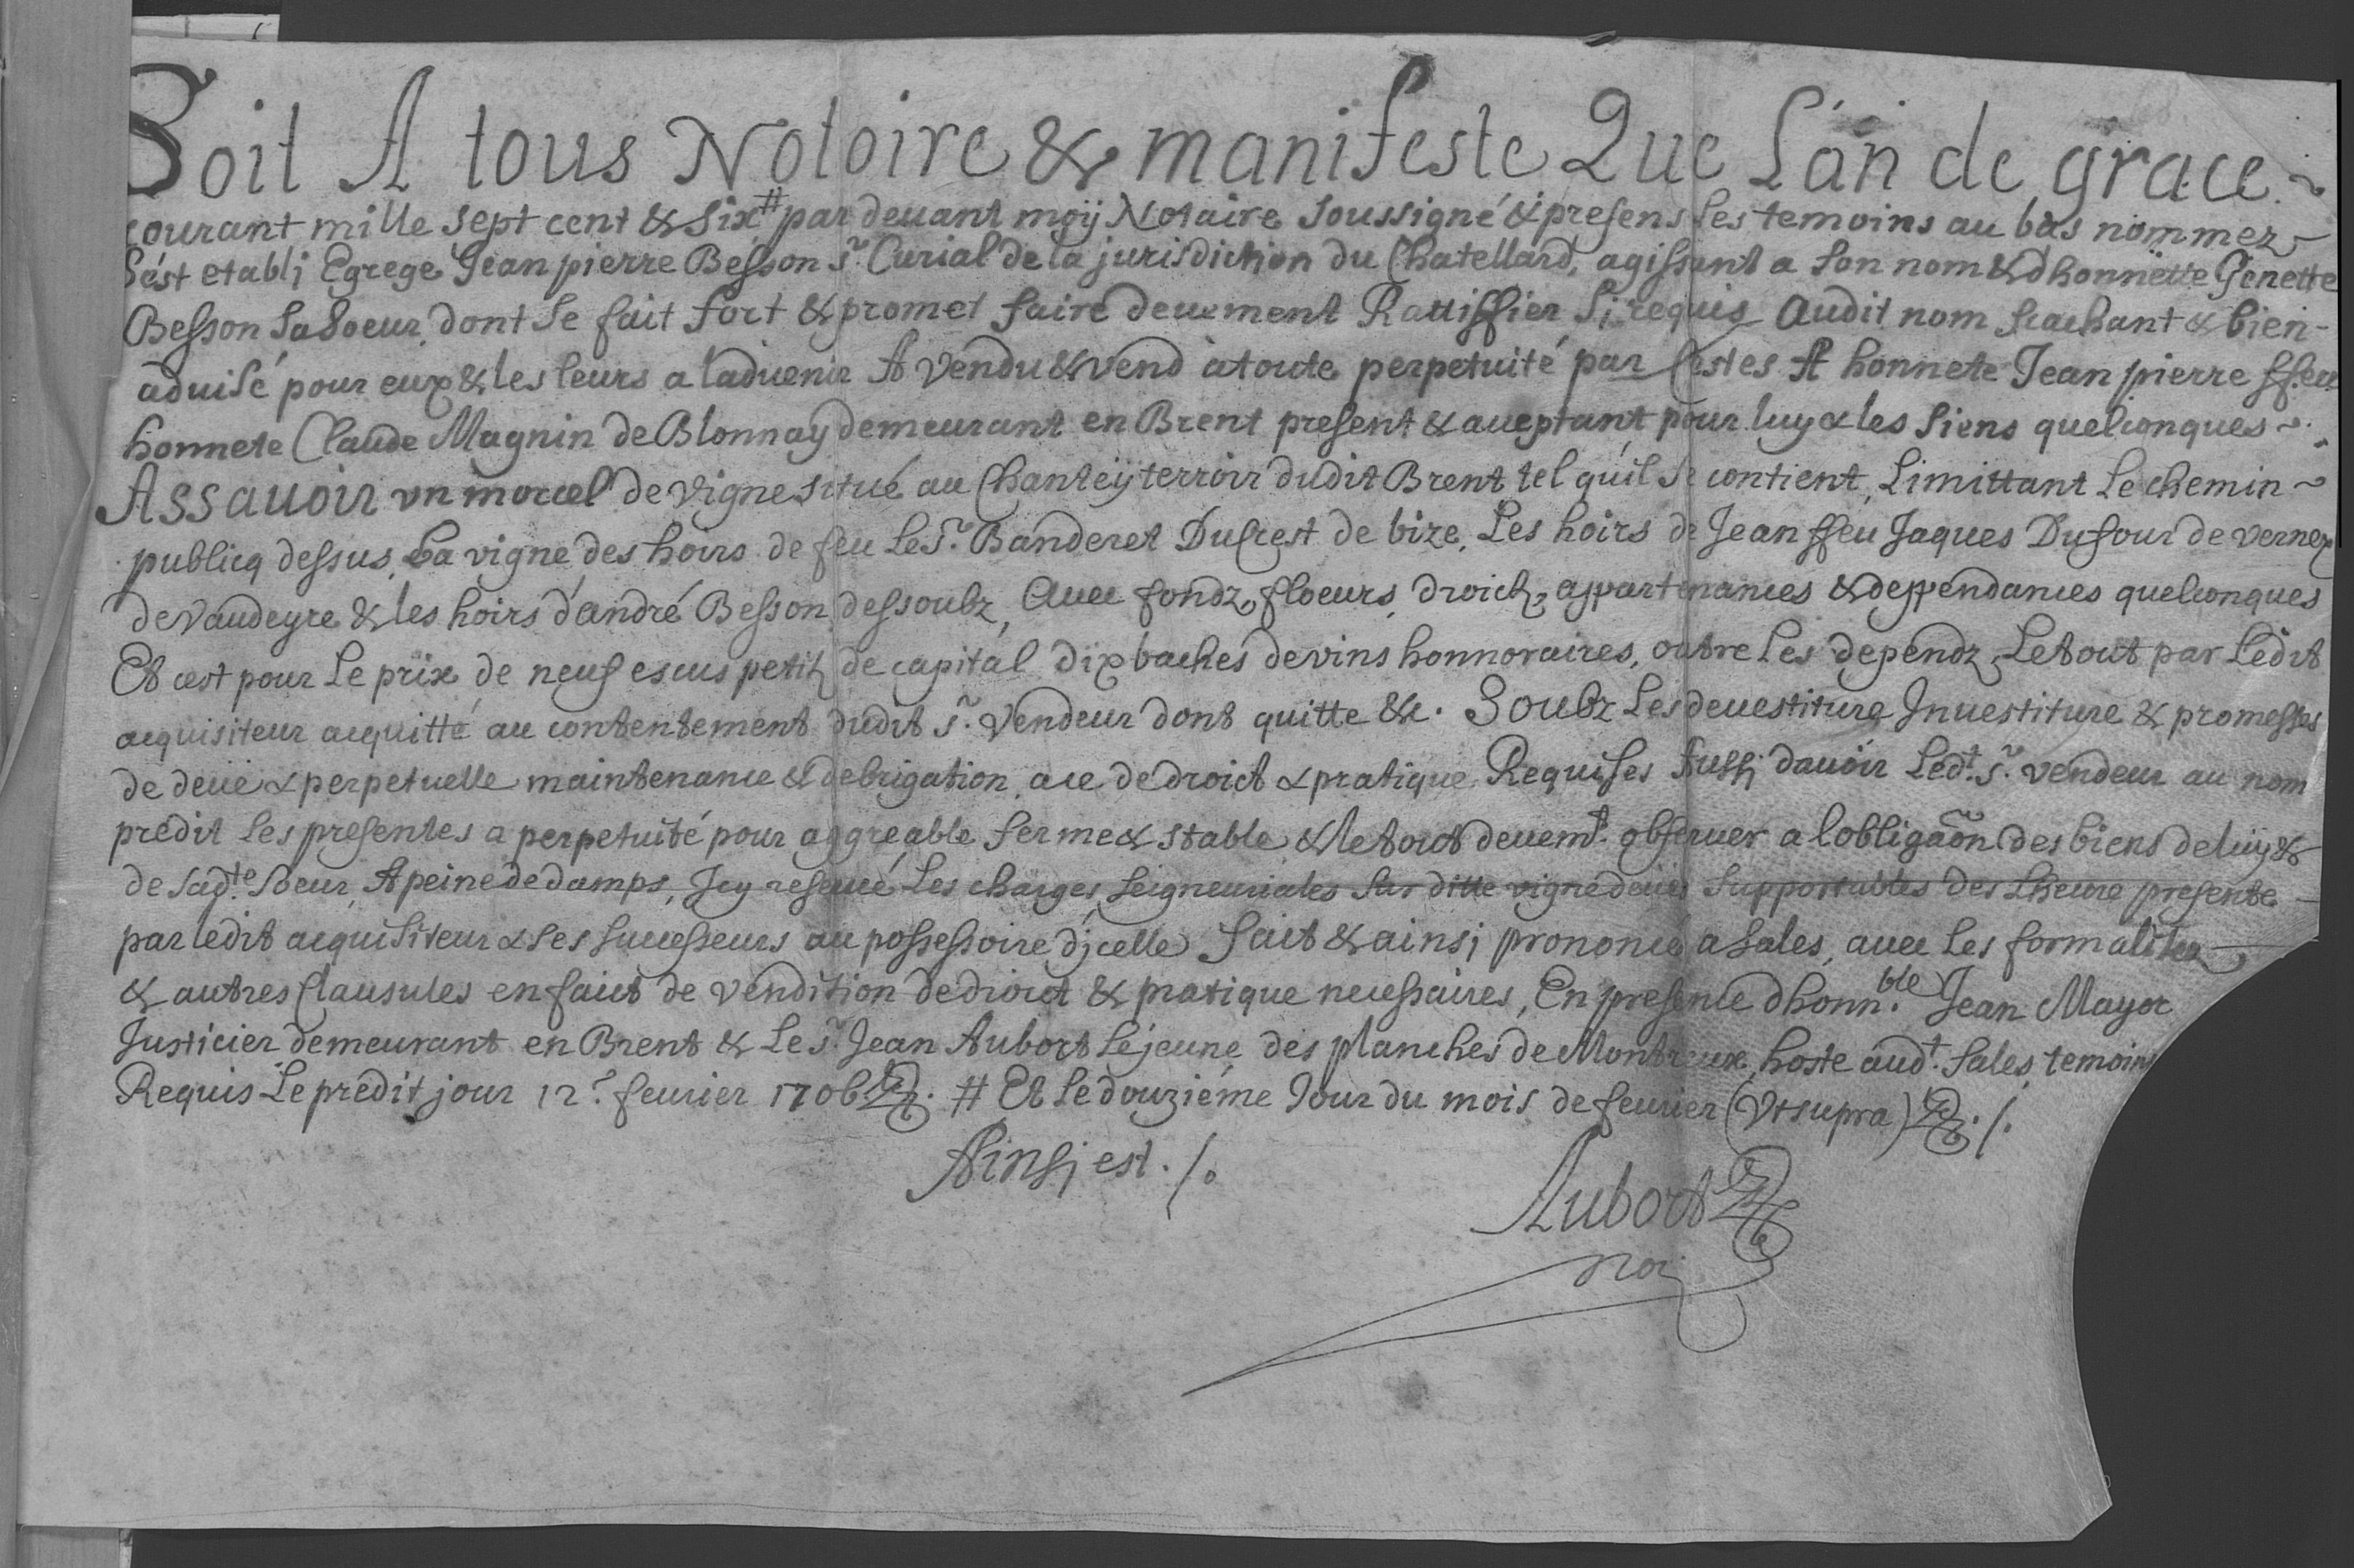 Soit A tous Notoire & manifeste Que L'an de grace
courant mille sept cent & six # par devant moÿ Notaire soussigné & presens les temoins au bas nommez
S'est etabli Egrege Jean pierre Besson Sr. Curial de la jurisdiction du Chatellard, agissant a son nom & dhonnette Genette
Besson sa soeur, dont se fait fort & promet faire deuement Rattiffier si requis Audit nom scachant & bien-
aduisé pour eux & les leurs a ladvenir A vendu & vend à toute perpetuité par cestes A honnete Jean pierre ffeu
honnete Claude Magnin de Blonnay demeurant en Brent present & acceptant pour luy & les siens quelconques
Assauoir un morcel de vigne situé au Chanteÿ terroir dudit Brent tel qu'il se contient, Limittant Le chemin
publicq dessus, La vigne des hoirs de feu Le Sr. Banderet Ducrest de bize, Les hoirs de Jean ffeu Jaques Dufour de vernex
de vaudeyre & les hoirs d'andré Besson dessoubz, Avec fondz, floeurs, droictz, appartenances & deppendances quelconques
Et c'est pour Le prix de neuf escus petitz de capital dix baches de vins honnoraires, outre Les dependz, Le tout par Ledit
acquisiteur acquitté au contentement dudit Sr. Vendeur dont quitte &c. Soubz Les devestiture Investiture & promesses
de deüe & perpetuelle maintenance & debrigation, a ce de droict & pratique Requises Aussi d'avoir Ledt. Sr. vendeur au nom
predit Les presentes a perpetuité pour aggreable ferme & stable & le tout deuemt. observer a l'obligaõn des biens de luÿ &
de sadte. soeur, A peine de damps, Icy reservé Les charges Seigneuriales sur ditte vigne deües supportables des Lheure presente
par ledit acquisiteur & ses successeurs au possessoire d'jcelle Fait & ainsi prononcé a Sales, avec les formalitez
& autres Clausules en faict de vendition de droict & pratique necessaires, En presence dhonn.ble Jean Mayor
Justicier demeurant en Brent & Le Sr. Jean Aubort Le jeune des planches de Montreux, hoste audt. Sales, temoins
Requis Le predit jour 12e. fevrier 1706. # Et le douziéme Jour du mois de fevrier (Vt supra)
Ainsi est.
Aubort
Nor